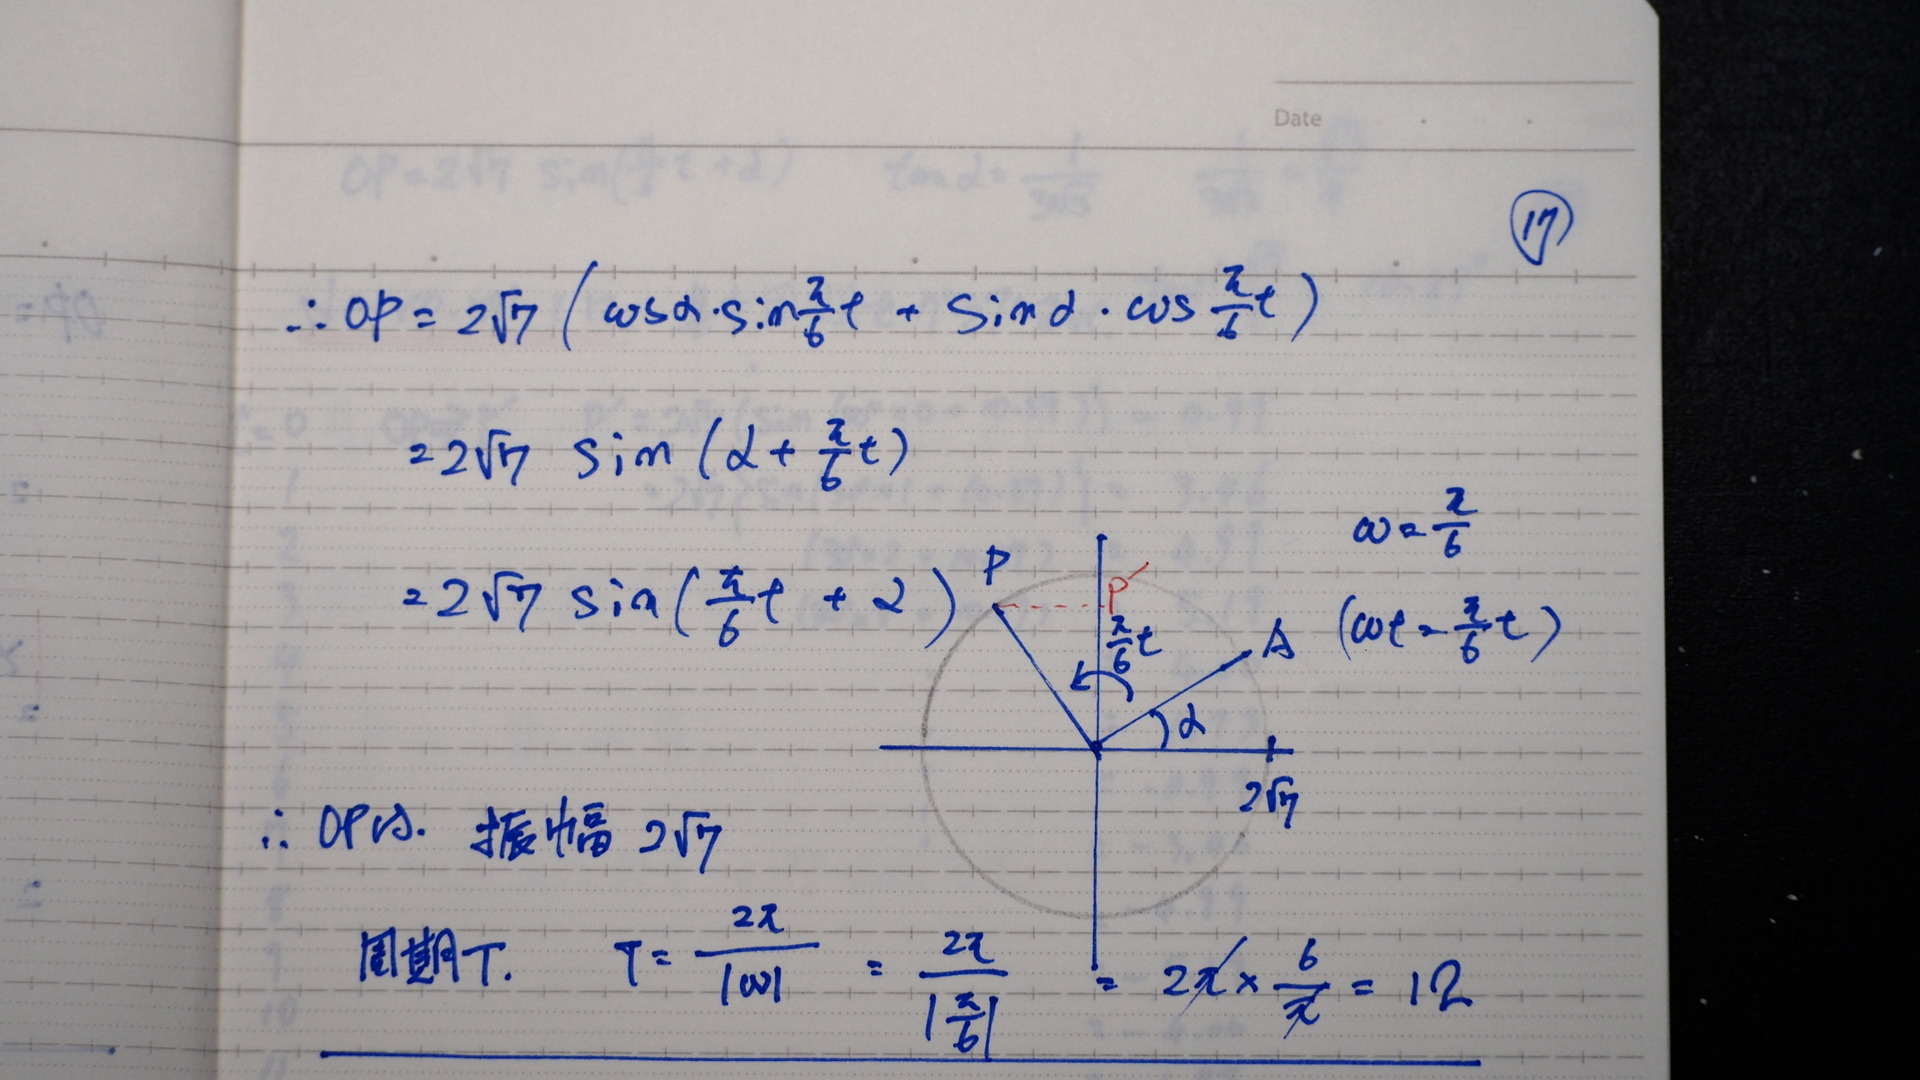 Date
⑰
∴ OP = 2√7 (cosα・sin π/6 t + sinα・cos π/6 t)
= 2√7 sin (α + π/6 t)
= 2√7 sin (π/6 t + α)
ω = π/6
(ωt = π/6 t)
P
P′
π/6 t
A
α
2√7
∴ OPは. 振幅 2√7
周期T. T = 2π/|ω| = 2π/|π/6| = 2π × 6/π = 12